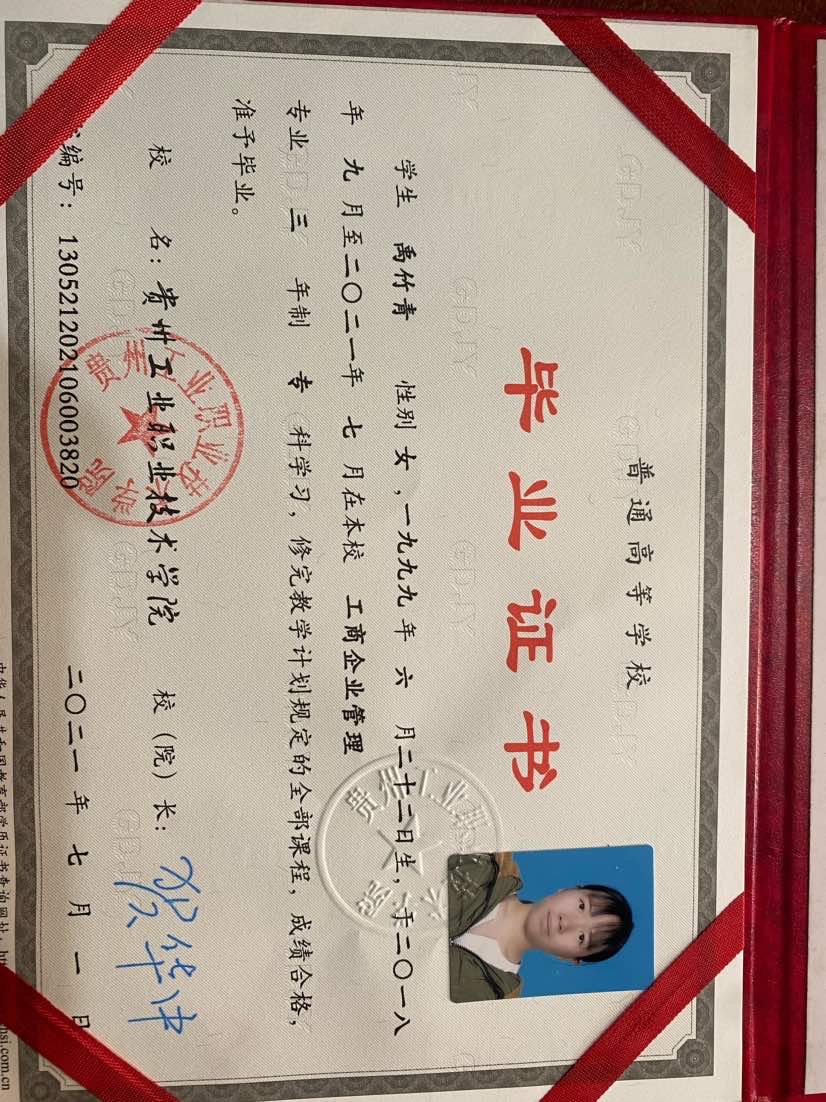 普通高等学校
毕业证书
学生 禹竹青 性别 女，一九九九年 六 月二十二日生，于二〇一八
年 九 月至二〇二一年 七 月在本校 工商企业管理
专业 三 年制 专 科学习，修完教学计划规定的全部课程，成绩合格，
准予毕业。
校 名：贵州工业职业技术学院 校（院）长：贺华中
编号：130521202106003820 二〇二一年 七 月 一 日
贵州工业职业技术学院
贵州工业职业
院
GDJY
中华人民共和国教育部学历证书查询网址：
si.com.cn